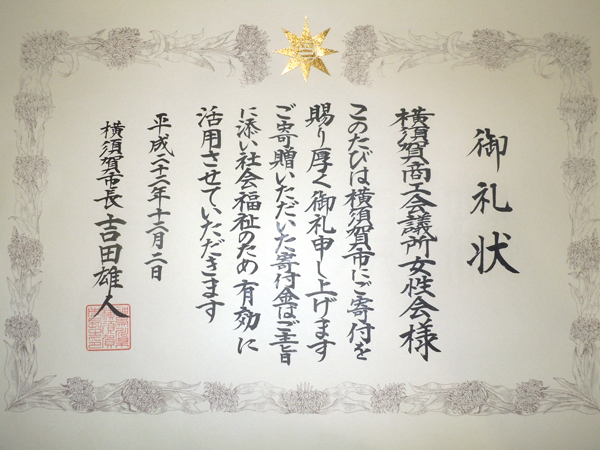 御礼状
横須賀商工会議所女性会様
このたびは横須賀市にご寄付を
賜り厚く御礼申し上げます
ご寄贈いただいた寄付金はご主旨
に添い社会福祉のため有効に
活用させていただきます
平成二十二年十二月二日
横須賀市長 吉田雄人